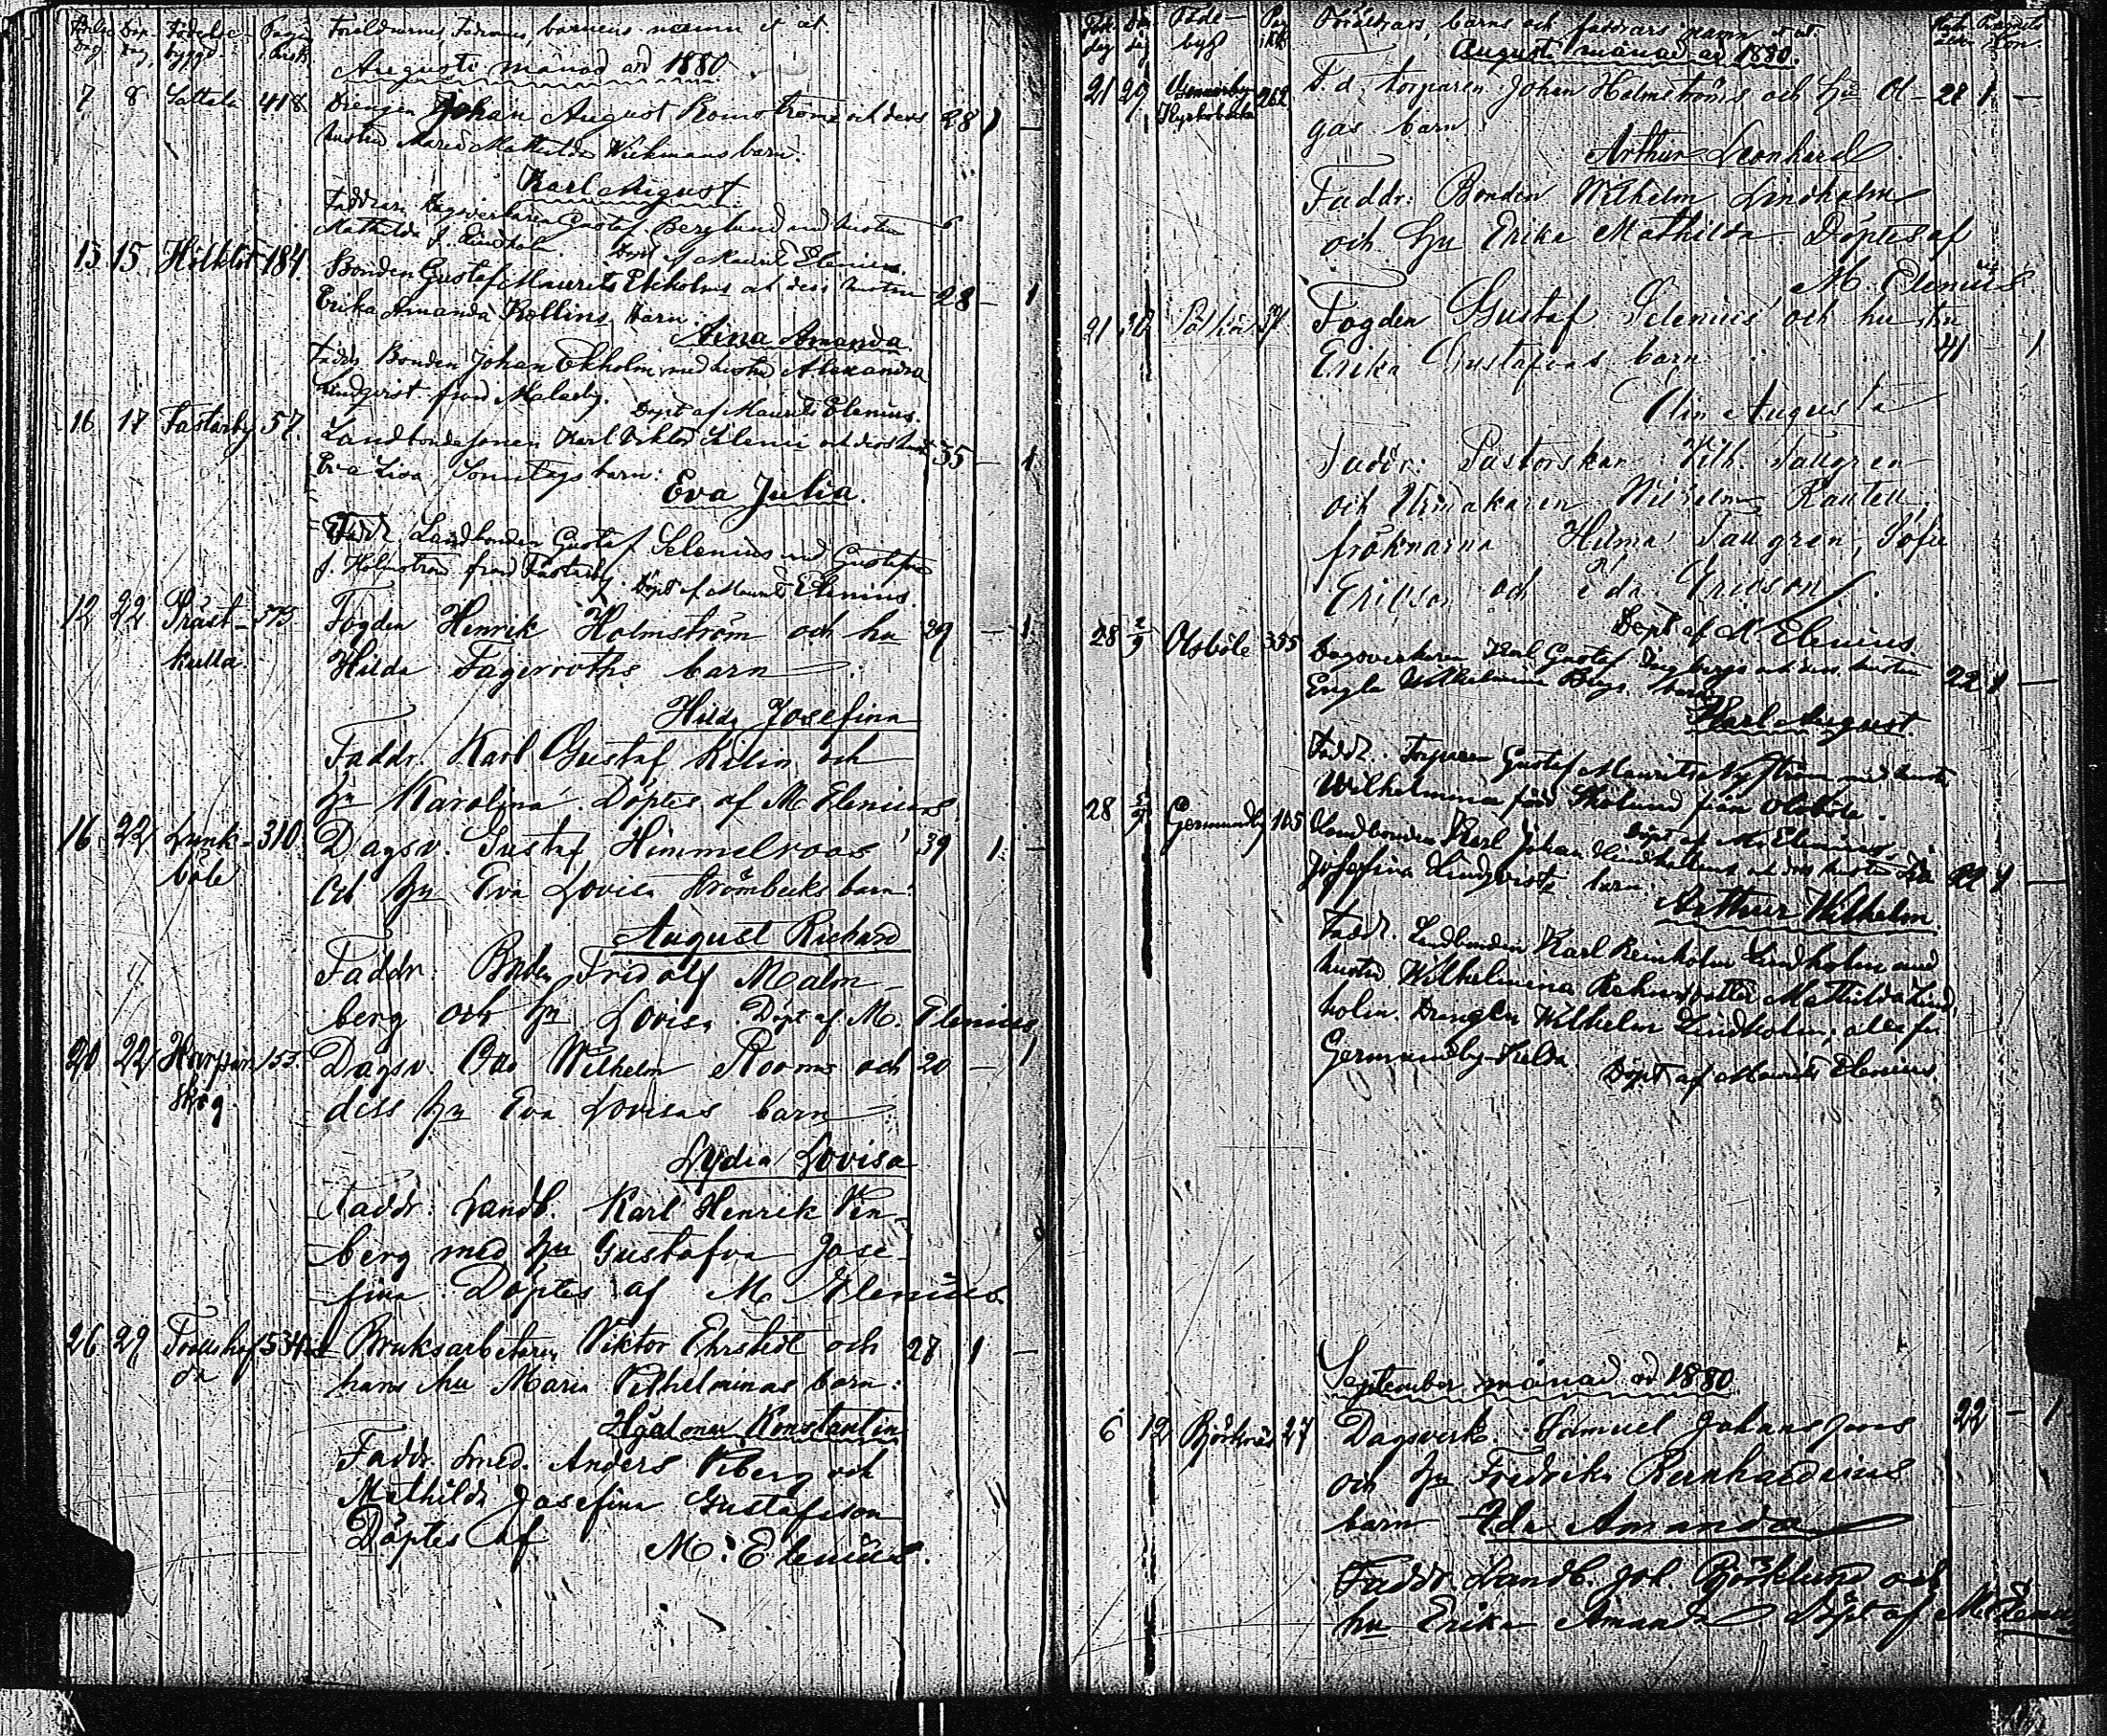 Augusti månad år 1880.
7 8 Sattala 418 Drengen Johan August Romströms och dess 28 1 —
hustru Maria Mathilda Wickmans barn:
Karl August.
Faddrar Dagsverkaren Gustaf Berglund med hustru
Mathilda f. Döpt af Maurits Elenius.
13 15 184 Bonden Gustaf Maurits Ekholms och dess hustru 28 — 1
Erika Amanda Rollins barn:
Aina Amanda.
Faddr. Bonden Johan Ekholm med hustru Alexandra
Lindqvist från Malarby. Döpt af Maurits Elenius.
16 17 Fastarby 57. Landbondesonen Karl Viktor och dess hust 35 — 1
Eva Lisa Sonntags barn:
Eva Julia.
Faddr. Landbonden Gustaf Selenius med Gustafva
f. Holmström från Fastarby. Döpt af Maurits Elenius.
12 22 Präst- Fogden Henrik Holmström och hu 29 — 1
kulla Hilda Fagerroths barn:
Hilda Josefina
Faddr. Karl Gustaf Relin och
hu Karolina. Döptes af M Elenius
16 22 Lunk- 310 Dagsv. Gustaf Himmelroos 39 1 —
böle och hu Eva Lovisa Strömbecks barn:
August Richard
Faddr. Bonden Fridolf Malm-
berg och hu Lovisa. Döpt af M. Elenius
20 22 155 Dagsv. Otto Wilhelm Rooms och 20 — 1
skog. dess hu Eva Lovisas barn:
Lydia Lovisa
Faddr. Landb. Karl Henrik Vin-
berg med hu Gustafva Jose-
fina. Döptes af M Elenius.
26 29 534 Bruksarbetaren Viktor Ehrstedt och 28 1 —
hans hu Maria Vilhelminas barn:
Hjalmar Konstantin
Faddr. Smed. Anders Viberg och
Mathilda Josefina Gustafsson
Döptes af M. Elenius.
Föräldrars, barns och faddrars namn
Augusti månad år 1880.
21 29 262 F.d. torparen Johan Holmströms och hu Ol- 28 1 —
Kyrkobacka gas barn
Arthur Leonhard.
Faddr: Bonden Wilhelm Lindholm
och hu Erika Mathilda. Döptes af
M. Elenius.
21 30 Fogden Gustaf Selenius och hustru
Erika Gustafvas barn: 41 1
Elin Augusta
Faddr: Pastorskan Vilh. Tallgren
och Urmakaren Wilhelm Rautell,
fröknarna Hilma Tallgren, Sofia
Ericson och Ida Ericson.
Döpt af M Elenius.
28 2/9 Olsböle 355 Dagsverkaren Karl Gustaf och dess hustru 22 1 —
Engla Wilhelmina Bergs barn
Karl August.
Faddr. Torparen Gustaf Maurits Nyström med hustru
Wilhelmina född från Olsböle.
Döpt af M. Elenius.
28 Germundby 105 Landbonden Karl Johan och dess hustru Ida 22 1 —
Josefina Lindqvists barn
Arthur Wilhelm.
Faddr. Landbonden Karl Reinholm Lindholm med
hustru Wilhelmina Mathilda Lind-
holm. Drengen Wilhelm Lindholm; alla fr.
Germundby Döpt af Maurits Elenius.
September månad år 1880
6 12 Björknäs 27 Dagsverk. Samuel Johanssons 22 — 1
och hu Fredrika Bernhardinas
barn Ida Amanda
Faddr. Landb. Joh. Björklund och
hu Erika Amanda Döpt af M Elenius